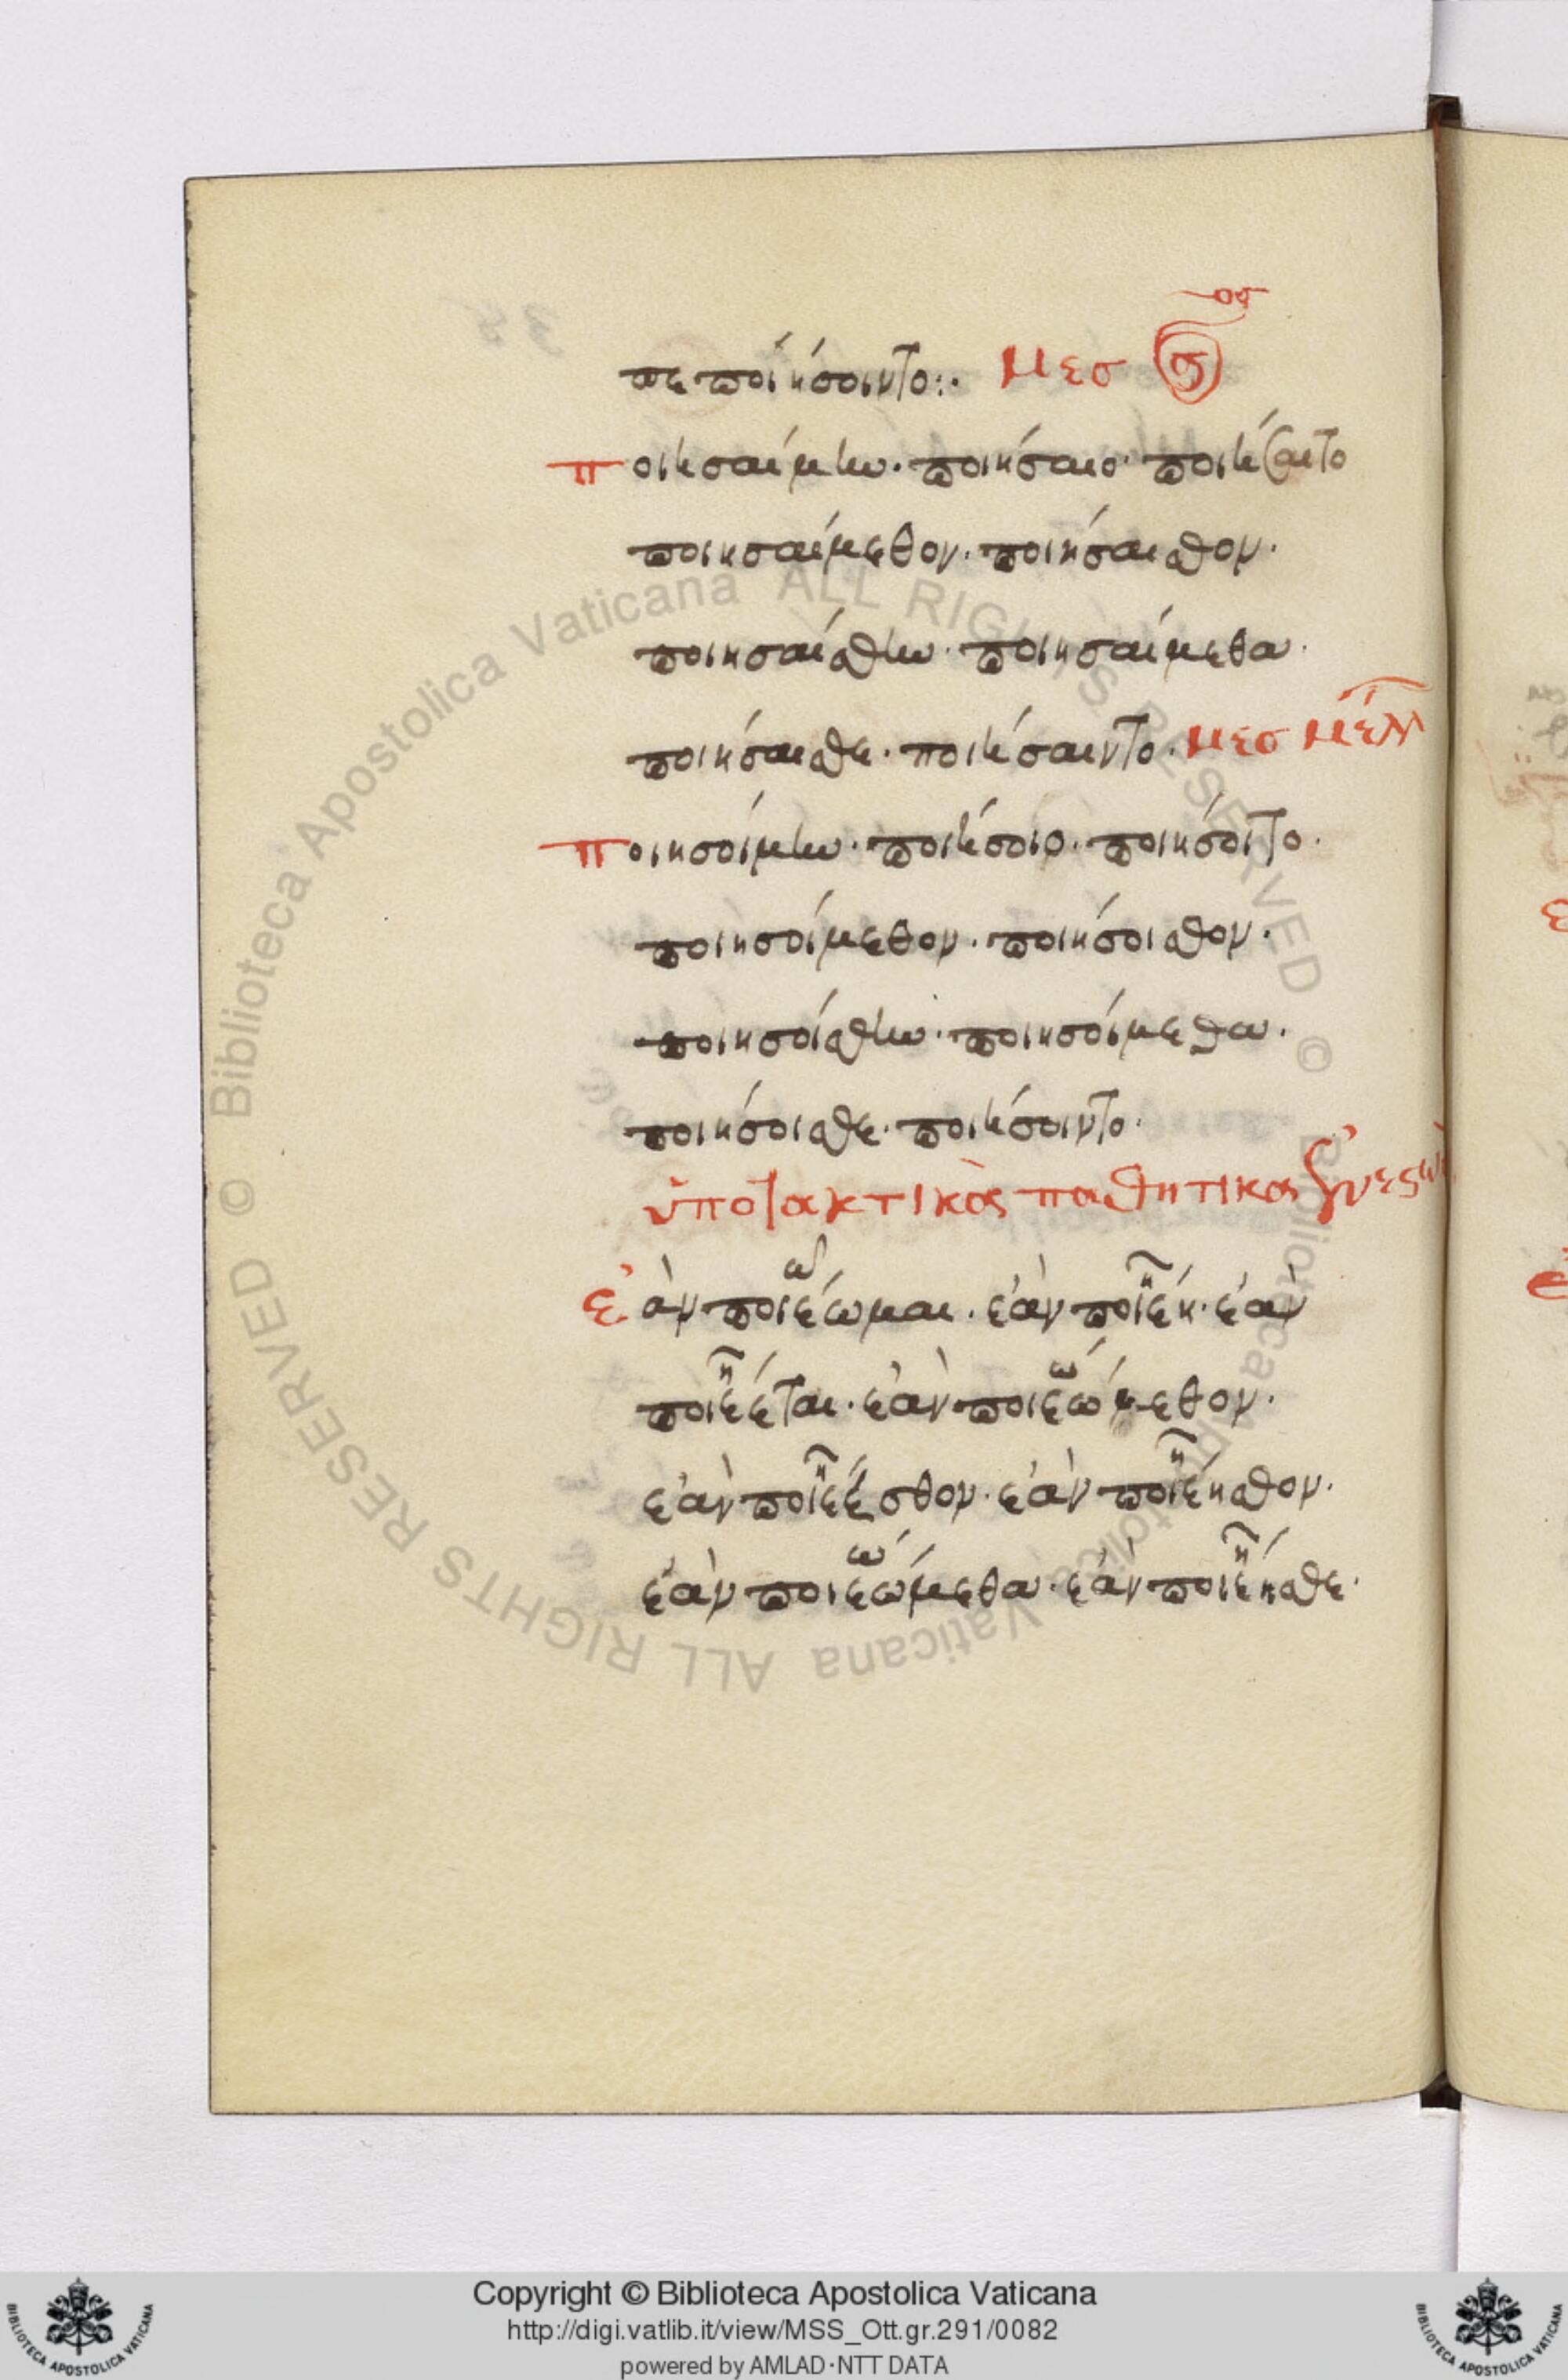 πεποιήσοιντο:. μεσ ἀόρ
ποιησαίμην. ποιήσαιο. ποιήσαιτο
ποιησαίμεθον. ποιήσαισθον.
ποιησαίσθην. ποιησαίμεθα.
ποιήσαισθε. ποιήσαιντο. μεσ μέλλ
ποιησοίμην. ποιήσοιο. ποιήσοιτο.
ποιησοίμεθον. ποιήσοισθον.
ποιησοίσθην. ποιησοίμεθα.
ποιήσοισθε. ποιήσοιντο.
ὑποτακτικὸς παθητικοσ
ἐὰν ποιέωμαι. ἐὰν ποιέη. ἐὰν
ποιέεται. ἐὰν ποιεώμεθον.
ἐὰν ποιέεσθον. ἐὰν ποιέησθον.
ἐὰν ποιεώμεθα. ἐὰν ποιέησθε.
© Biblioteca Apostolica Vaticana ALL RIGHTS RESERVED
© Biblioteca Apostolica Vaticana ALL RIGHTS RESERVED
Copyright © Biblioteca Apostolica Vaticana
http://digi.vatlib.it/view/MSS_Ott.gr.291/0082
powered by AMLAD·NTT DATA
BIBLIOTECA APOSTOLICA VATICANA
BIBLIOTECA APOSTOLICA VATICANA